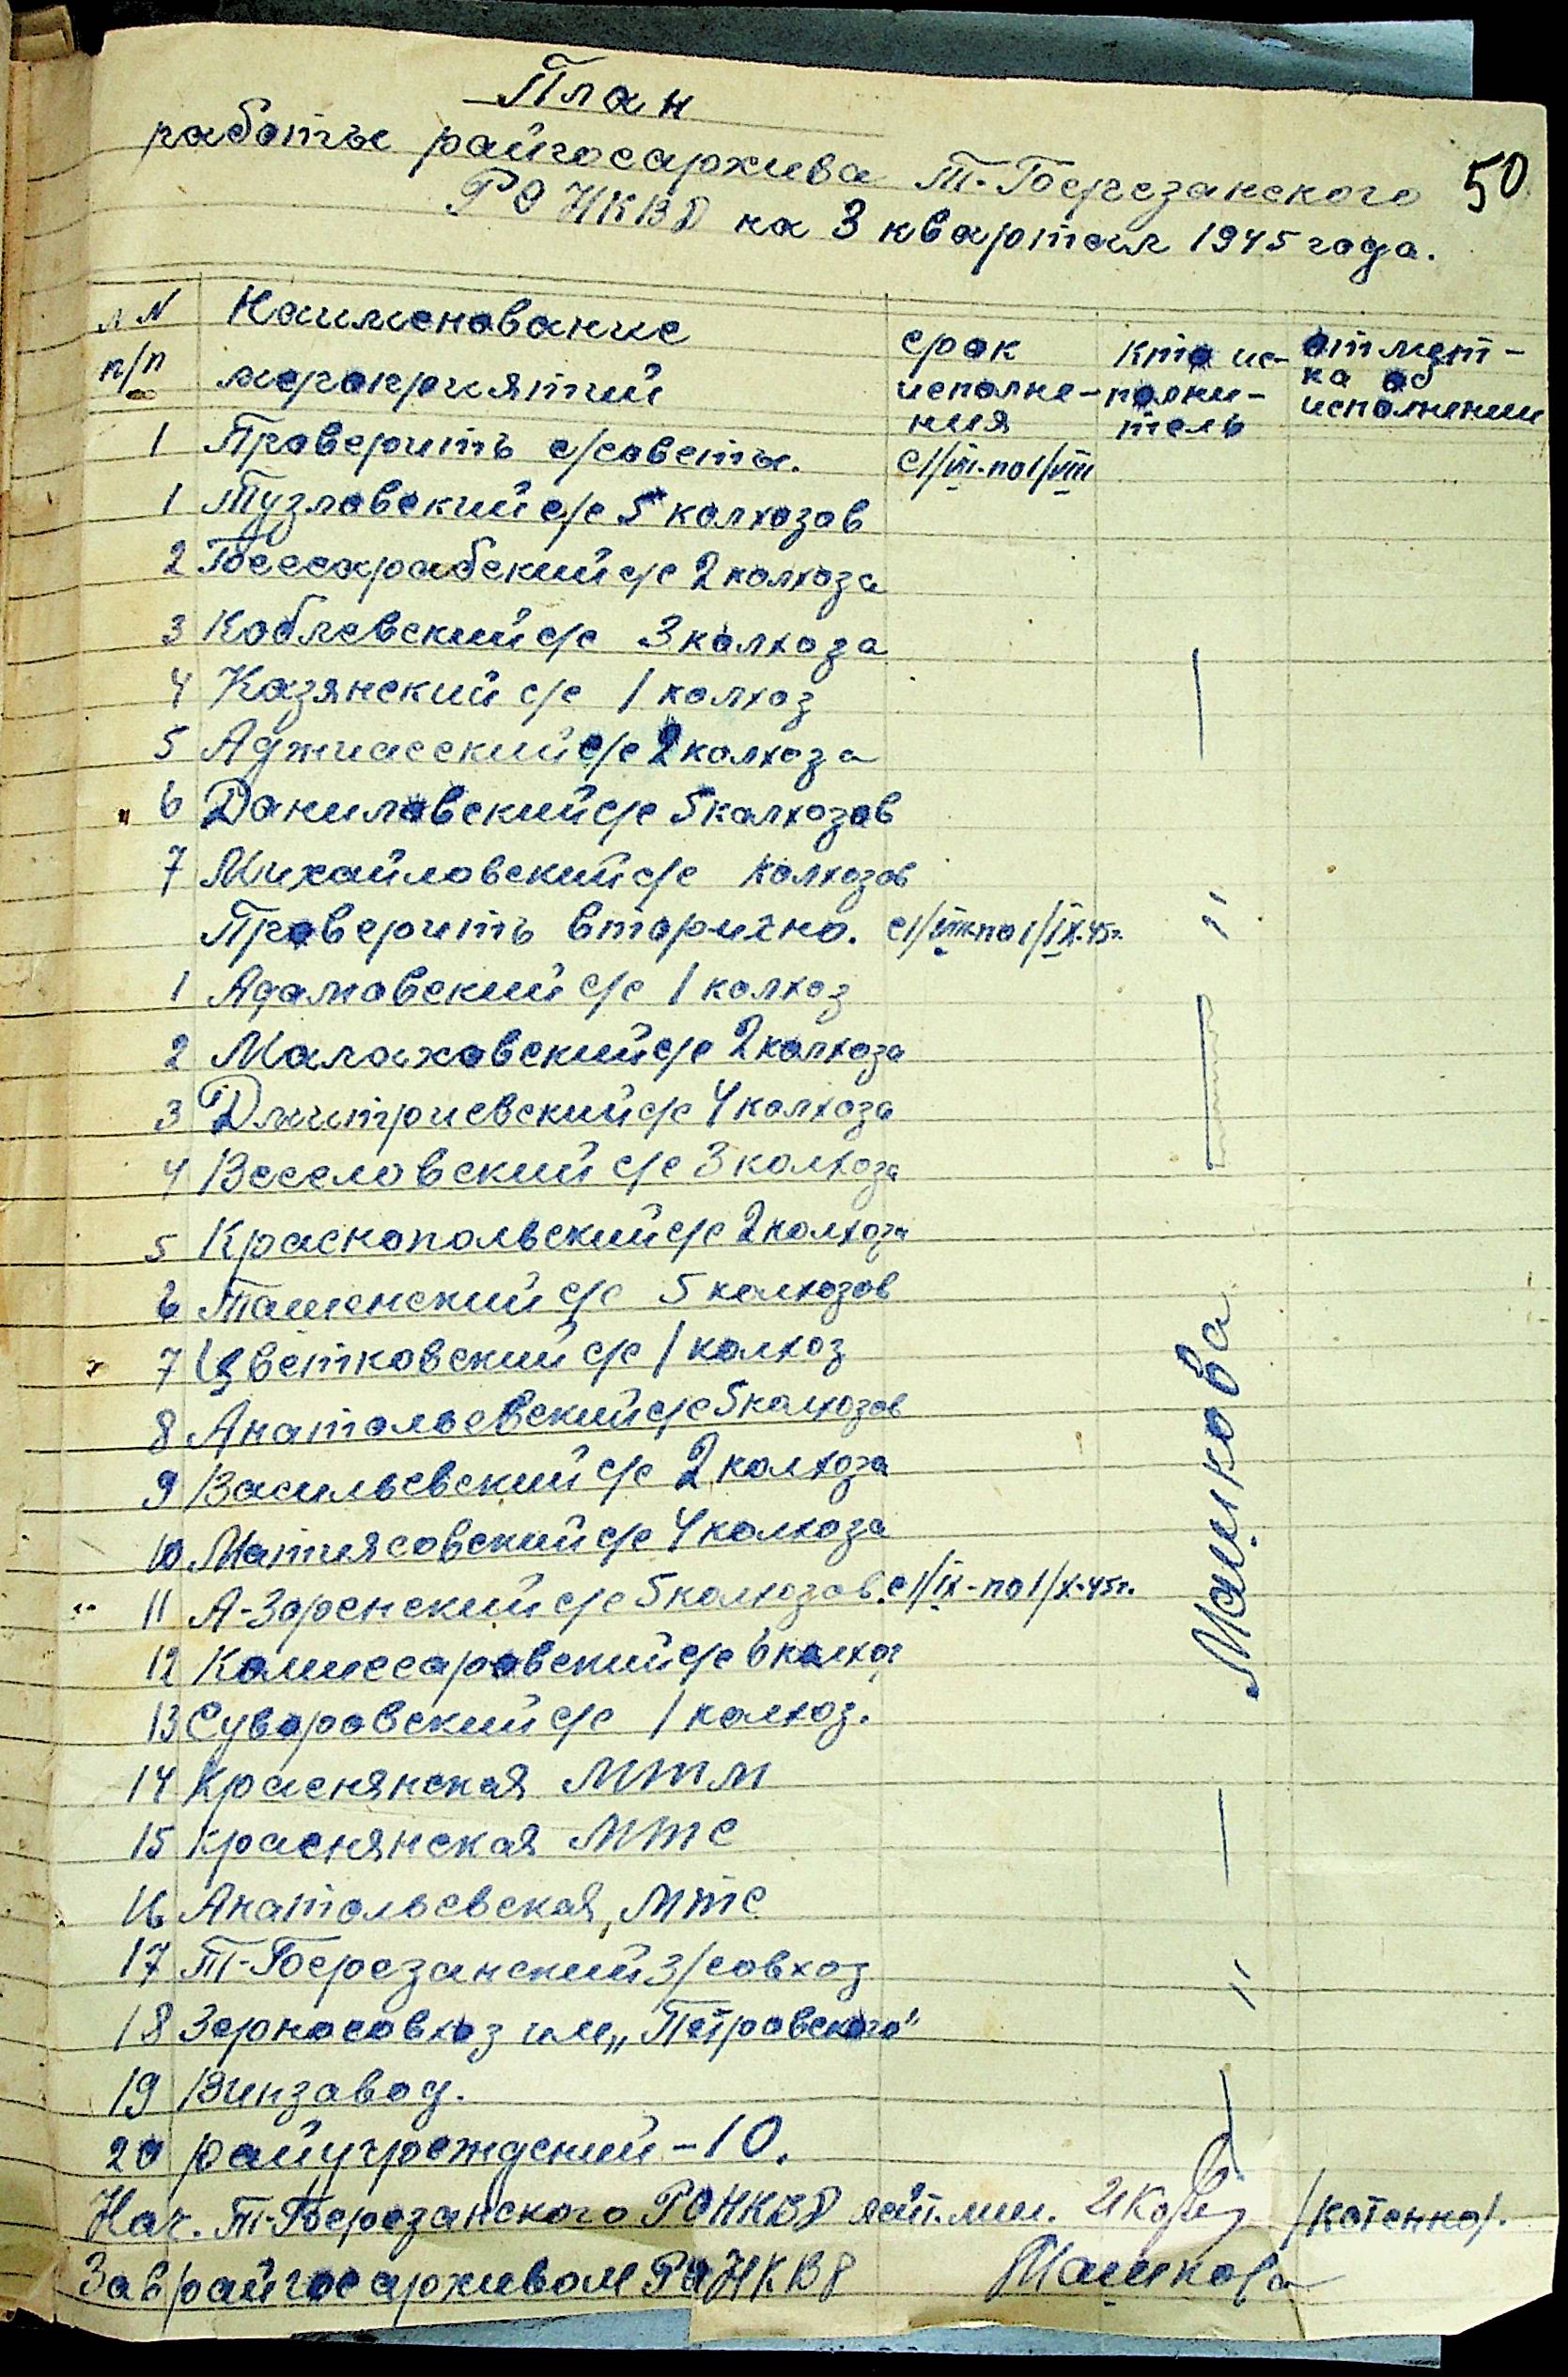 План
работы райгосархива Т-Березанского
50
РО НКВД на 3 квартал 1945 года.
№ N п/п
Наименование мероприятий
срок исполне-ния
кто ис-полни-тель
отмет-ка об исполнении
1 Проверить с/советы. с 1/VII-по 1/VIII
1 Тузловский с/с 5 колхозов
2 Бессарабский с/с 2 колхоза
3 Коблевский с/с 3 колхоза
4 Казянский с/с 1 колхоз
5 Аджиасский с/с 2 колхоза
6 Даниловский с/с 5 колхозов
7 Михайловский с/с колхозов
Проверить вторично. с 1/VIII-по 1/IX-45г. "
1 Адамовский с/с 1 колхоз
2 Малаховский с/с 2 колхоза
3 Дмитриевский с/с 4 колхоза
4 Веселовский с/с 3 колхоза
5 Краснопольский с/с 2 колхоза
6 Ташенский с/с 5 колхозов
7 Цветковский с/с 1 колхоз
8 Анатольевский с/с 5 колхозов
9 Васильевский с/с 2 колхоза
10 Матиясовский с/с 4 колхоза
11 А-Зоренский с/с 5 колхозов. с 1/IX-по 1/X-45г.
Машкова
12 Комиссаровский с/с 6 колхоз
13 Суворовский с/с 1 колхоз.
14 Краснянская МТМ
15 Краснянская МТС
16 Анатольевская МТС
17 Т-Березанский з/совхоз "
18 Зерносовхоз им „Петровского"
19 Винзавод.
20 райучреждений-10.
Нач. Т-Березанского РОНКВД лейт. мил. /Котенко/.
Зав райгосархивом РОНКВД Машкова